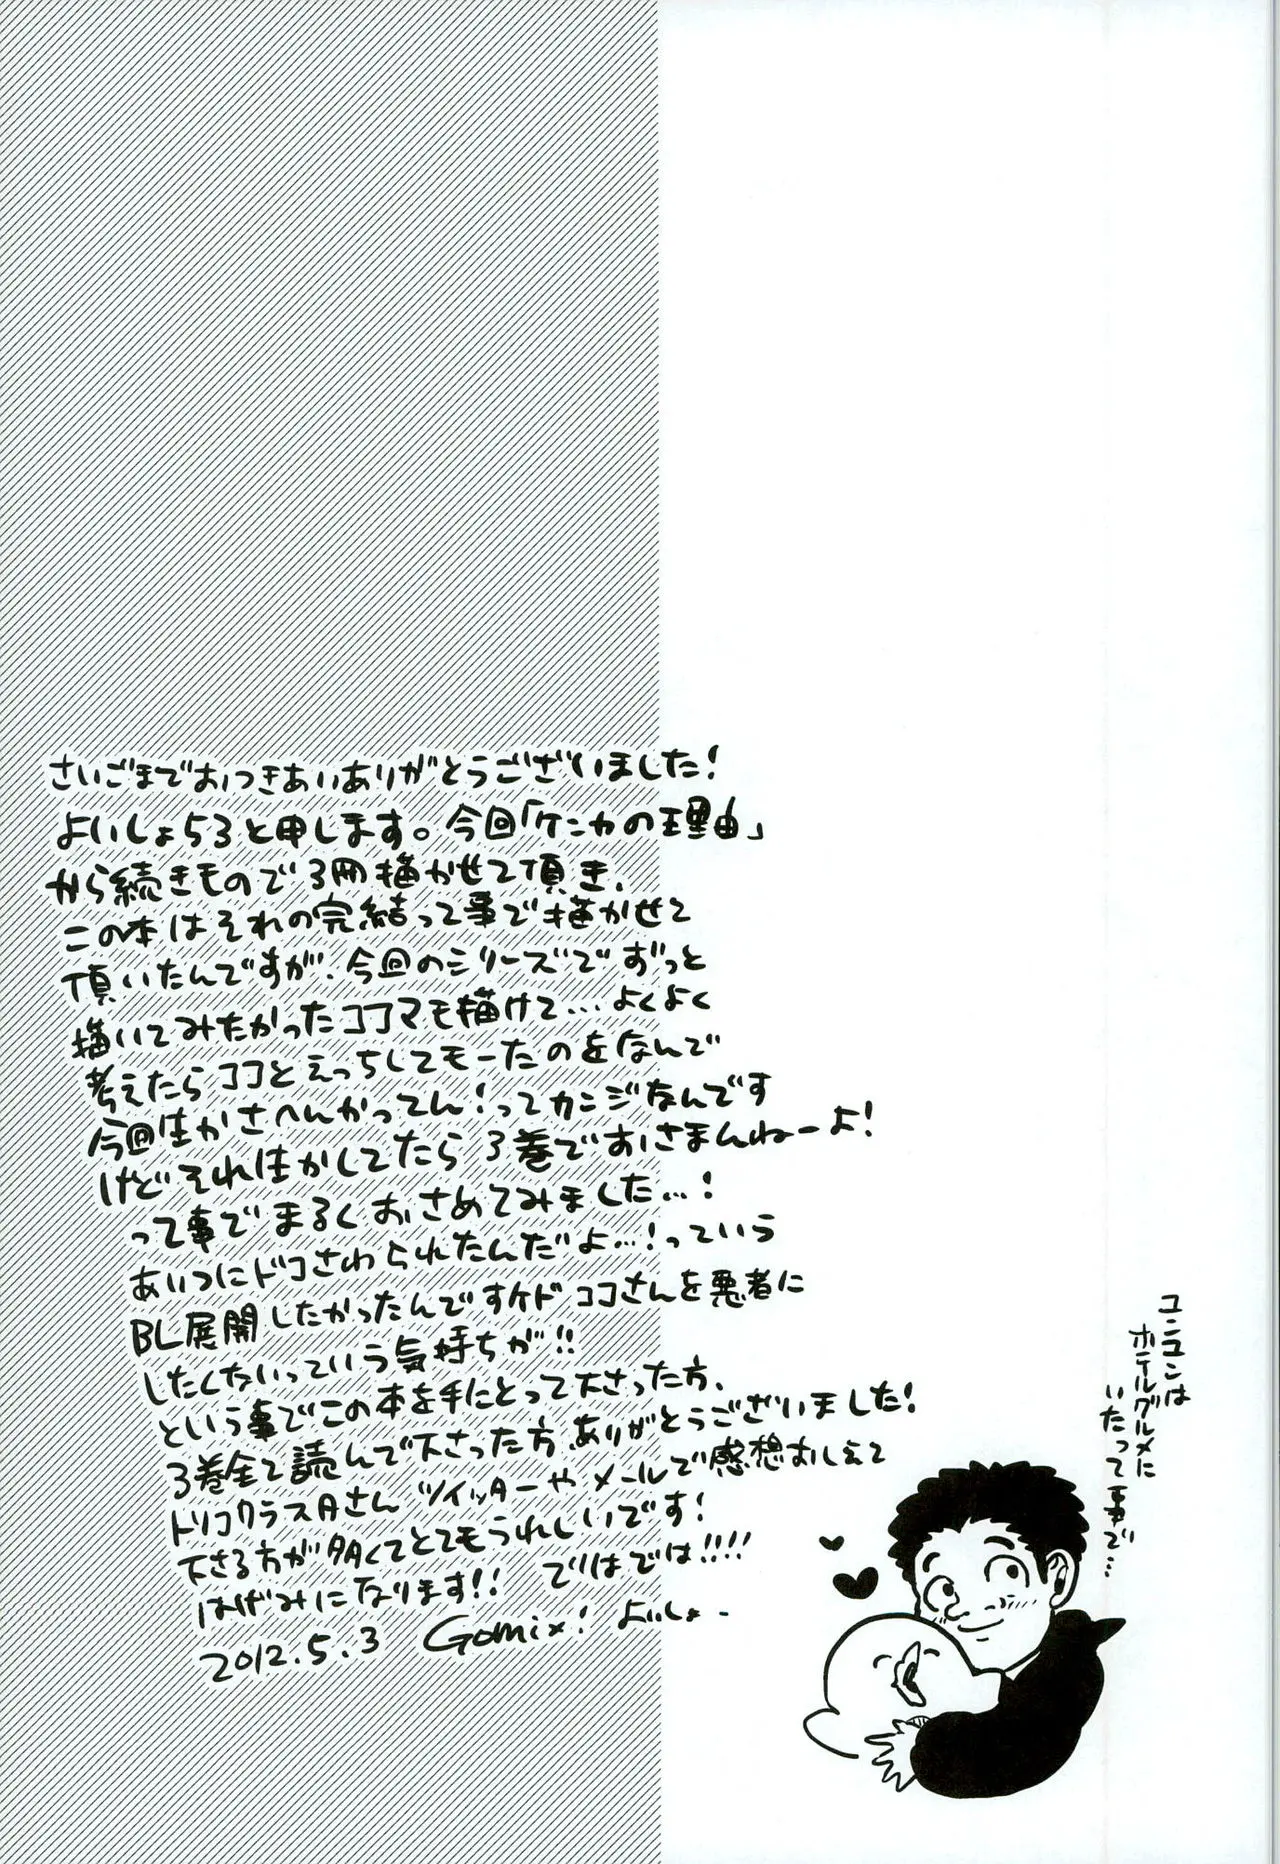 さいごまでおつきあいありがとうございました!
よいしょ53と申します。今回「ケンカの理由」
から続きもので3冊描かせて頂き、
この本はそれの完結って事で描かせて
頂いたんですが、今回のシリーズでずっと
描いてみたかったココマも描けて…よくよく
考えたらココとえっちしてモーたのをなんで
今回生かさへんかってん!ってカンジなんです
けどそれ生かしてたら3巻でおさまんねーよ!
って事でまるくおさめてみました…!
あいつにドコさわられたんだよ…!っていう
BL展開したかったんですケドココさんを悪者に
したくないっていう気持ちが!!
という事でこの本を手にとって下さった方、
3巻全て読んで下さった方、ありがとうございました!
トリコクラスタさんツイッターやメールで感想おしえて
下さる方が多くてとてもうれしいです!
はげみになります!! ではでは!!!!
2012.5.3 Gomix! よいしょ.
ユンユンは
ホテルグルメに
いたって事で…